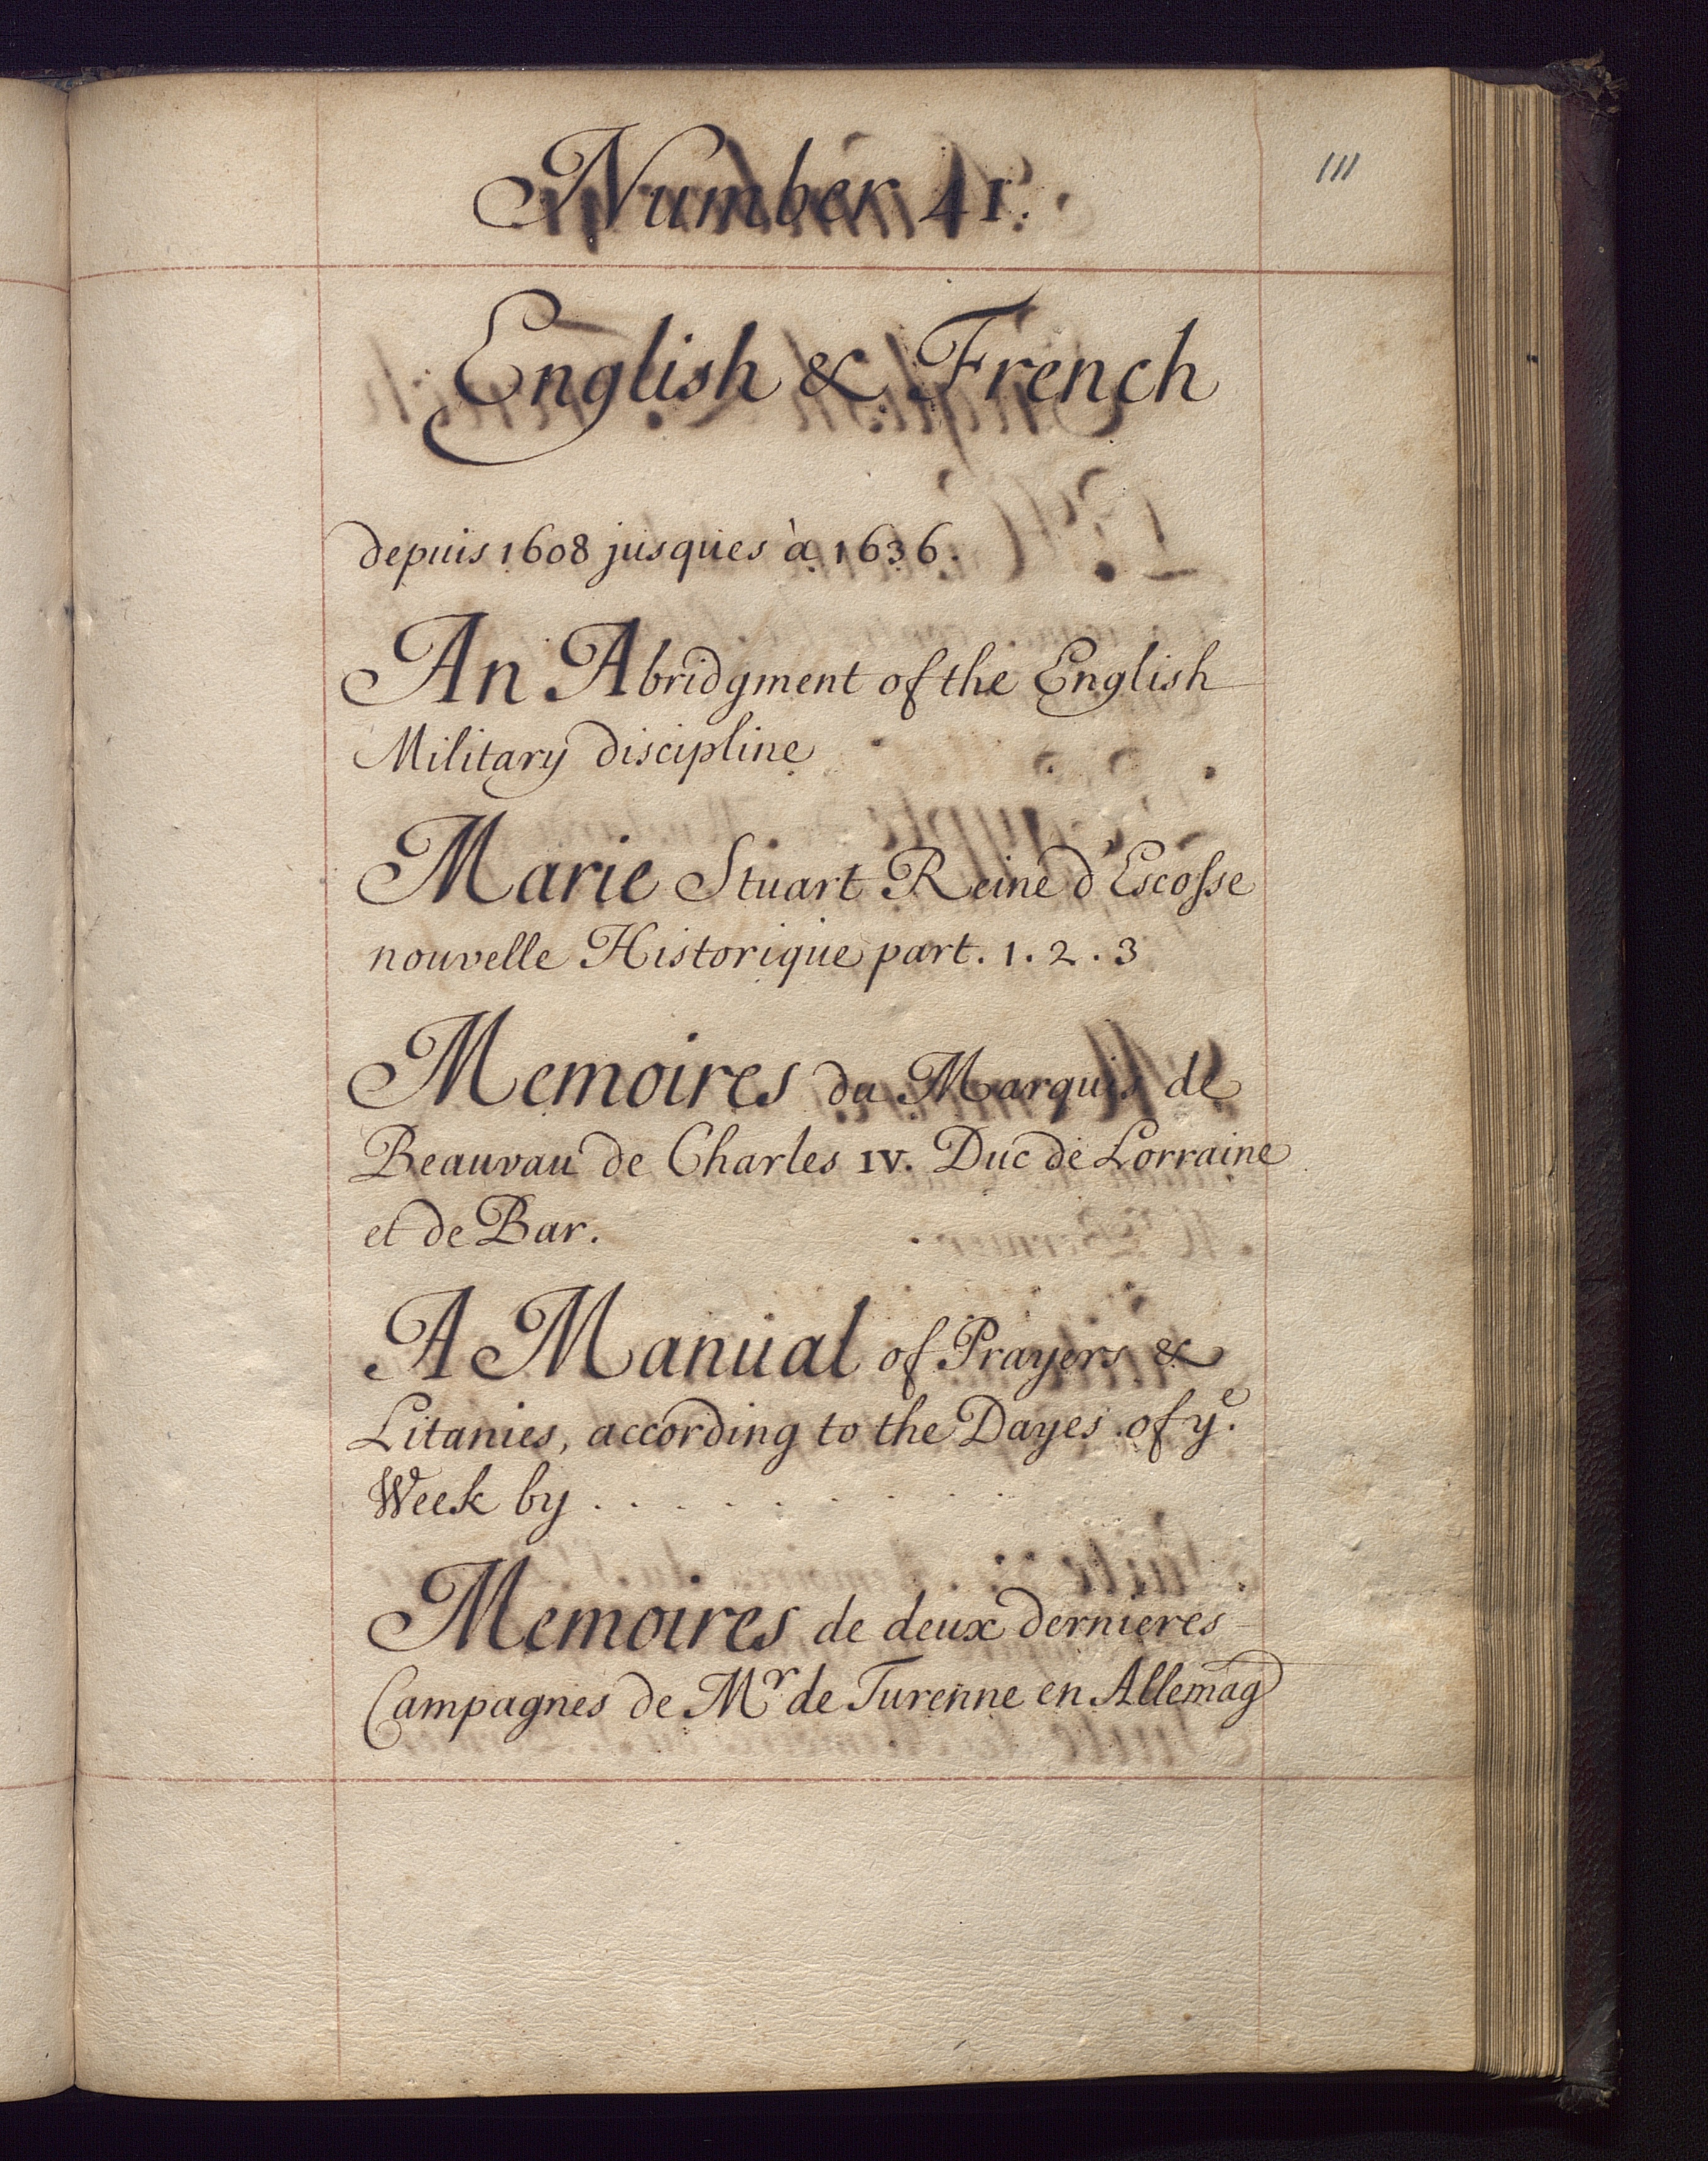 Number 41.
111
English & French
depuis 1608 jusques à 1636.
An Abridgment of the English
Military discipline
Marie Stuart Reine d'Escosse
nouvelle Historique part. 1. 2. 3
Memoires du Marquis de
Beauvau de Charles IV. Duc de Lorraine
et de Bar.
A Manual of Prayers &
Litanies, according to the Dayes of yᵉ.
Week by . . . . . . . . . .
Memoires de deux dernieres
Campagnes de Mʳ de Turenne en Allemag